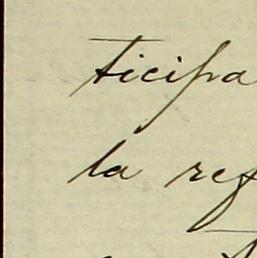 ticipa
la ref